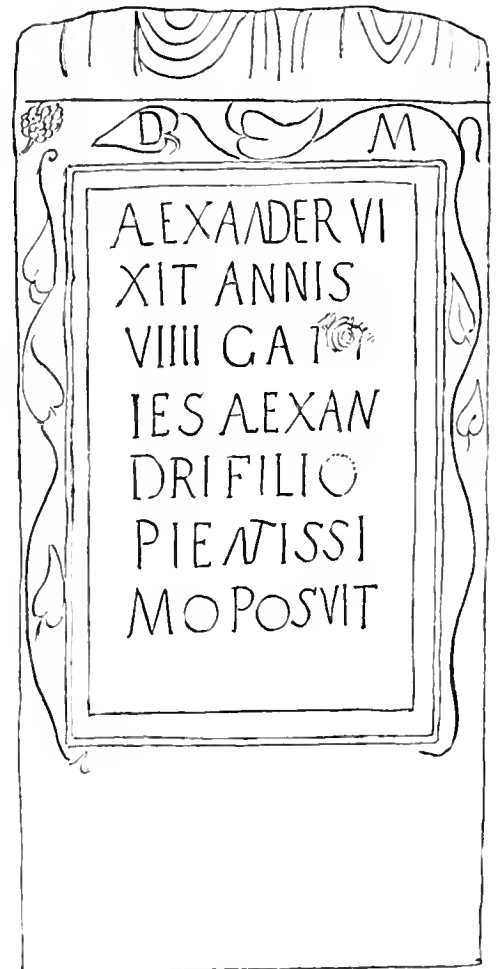 D M
ALEXANDER VI
XIT ANNIS
VIIII
IES ALEXAN
DRI FILIO
PIENTISSI
MO POSVIT